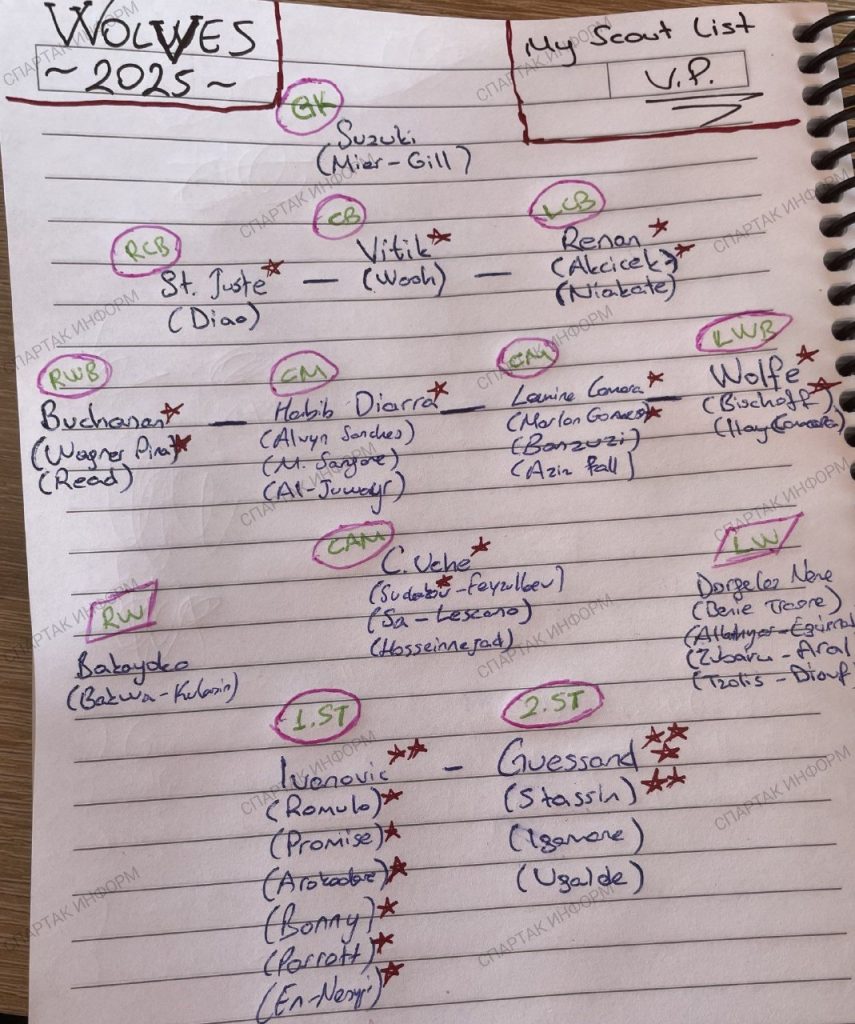 WOLWES
~ 2025 ~
My Scout List
V.P.
GK
Suzuki
(Mier - Gill)
RCB
CB
LCB
St. Juste — Vitik — Renan
(Diao)
(Wooh)
(Akcicek)
(Niakate)
RWB
CM
CM
LWB
Buchanan — Habib Diarra — Lamine Camara — Wolfe
(Wagner Pina)
(Read)
(Alvyn Sanches)
(M. Sangare)
(Al-Juwayr)
(Marlon Gomes)
(Banzuzi)
(Aziz Fall)
(Bischoff)
CAM
RW
LW
C. Uche
(Sudakov - Feyzullaev)
(Sa - Lescano)
(Hosseinnejad)
Bakayoko
Dorgeles Nene
(Benie Traore)
(Tzolis - Diouf)
1.ST
2.ST
Ivanovic - Guessand
(Romulo)
(Promise)
(Arokodare)
(Bonny)
(Parrott)
(En-Nesyri)
(Stassin)
(Igamane)
(Ugalde)
СПАРТАК ИНФОРМ